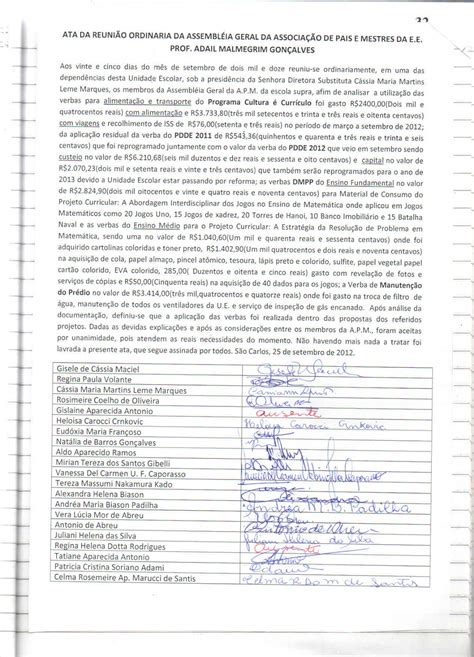 32
ATA DA REUNIÃO ORDINARIA DA ASSEMBLÉIA GERAL DA ASSOCIAÇÃO DE PAIS E MESTRES DA E.E.
PROF. ADAIL MALMEGRIM GONÇALVES
Aos vinte e cinco dias do mês de setembro de dois mil e doze reuniu-se ordinariamente, em uma das
dependências desta Unidade Escolar, sob a presidência da Senhora Diretora Substituta Cássia Maria Martins
Leme Marques, os membros da Assembléia Geral da A.P.M. da escola supra, afim de analisar a utilização das
verbas para alimentação e transporte do Programa Cultura é Currículo foi gasto R$2400,00(Dois mil e
quatrocentos reais) com alimentação e R$3.733,80(três mil setecentos e trinta e três reais e oitenta centavos)
com viagens e recolhimento de ISS de R$76,00(setenta e três reais) no período de março a setembro de 2012;
da aplicação residual da verba do PDDE 2011 de R$543,36(quinhentos e quarenta e três reais e trinta e seis
centavos) que foi reprogramado juntamente com o valor da verba do PDDE 2012 que veio em setembro sendo
custeio no valor de R$6.210,68(seis mil duzentos e dez reais e sessenta e oito centavos) e capital no valor de
R$2.070,23(dois mil e setenta reais e vinte e três centavos) que também serão reprogramados para o ano de
2013 devido a Unidade Escolar estar passando por reforma; as verbas DMPP do Ensino Fundamental no valor
de R$2.824,90(dois mil oitocentos e vinte e quatro reais e noventa centavos) para Material de Consumo do
Projeto Curricular: A Abordagem Interdisciplinar dos Jogos no Ensino de Matemática onde aplicou em Jogos
Matemáticos como 20 Jogos Uno, 15 Jogos de xadrez, 20 Torres de Hanoi, 10 Banco Imobiliário e 15 Batalha
Naval e as verbas do Ensino Médio para o Projeto Curricular: A Estratégia da Resolução de Problema em
Matemática, sendo uma no valor de R$1.040,60(Um mil e quarenta reais e sessenta centavos) onde foi
adquirido cartolinas coloridas e toner preto, R$1.402,90(Um mil quatrocentos e dois reais e noventa centavos)
na aquisição de cola, papel almaço, pincel atômico, tesoura, lápis preto e colorido, sulfite, papel vegetal papel
cartão colorido, EVA colorido, 285,00( Duzentos e oitenta e cinco reais) gasto com revelação de fotos e
serviços de cópias e R$50,00(Cinquenta reais) na aquisição de 40 dados para os jogos; a Verba de Manutenção
do Prédio no valor de R$3.414,00(três mil,quatrocentos e quatorze reais) onde foi gasto na troca de filtro de
água, manutenção de todos os ventiladores da U.E. e serviço de inspeção de gás encanado. Após análise da
documentação, definiu-se que a aplicação das verbas foi realizada dentro das propostas dos referidos
projetos. Dadas as devidas explicações e após as considerações entre os membros da A.P.M., foram aceitas
por unanimidade, pois atendem as reais necessidades do momento. Não havendo mais nada a tratar foi
lavrada a presente ata, que segue assinada por todos. São Carlos, 25 de setembro de 2012.
Gisele de Cássia Maciel
Regina Paula Volante
Cássia Maria Martins Leme Marques
Rosimeire Coelho de Oliveira
Gislaine Aparecida Antonio ausente
Heloisa Carocci Crnkovic Heloisa Carocci Crnkovic
Eudóxia Maria Françoso
Natália de Barros Gonçalves
Aldo Aparecido Ramos
Mirian Tereza dos Santos Gibelli
Vanessa Del Carmen U. F. Caporasso
Tereza Massumi Nakamura Kado
Alexandra Helena Biason
Andréa Maria Biason Padilha Andréa M. B. Padilha
Vera Lúcia Mor de Abreu
Antonio de Abreu Antonio de Abreu
Juliani Helena das Silva Juliani Helena da Silva
Regina Helena Dotta Rodrigues ausente
Tatiane Aparecida Antonio
Patricia Cristina Soriano Adami
Celma Rosemeire Ap. Marucci de Santis